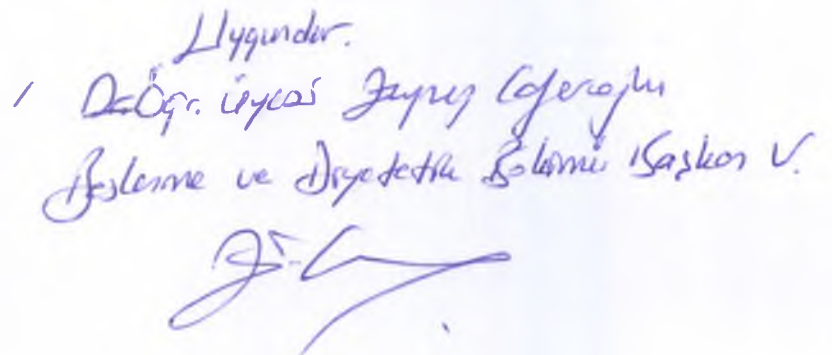 Uygundur.
Dr. Öğr. Üyesi Zeynep Caferoğlu
Beslenme ve Diyetetik Bölümü Başkan V.